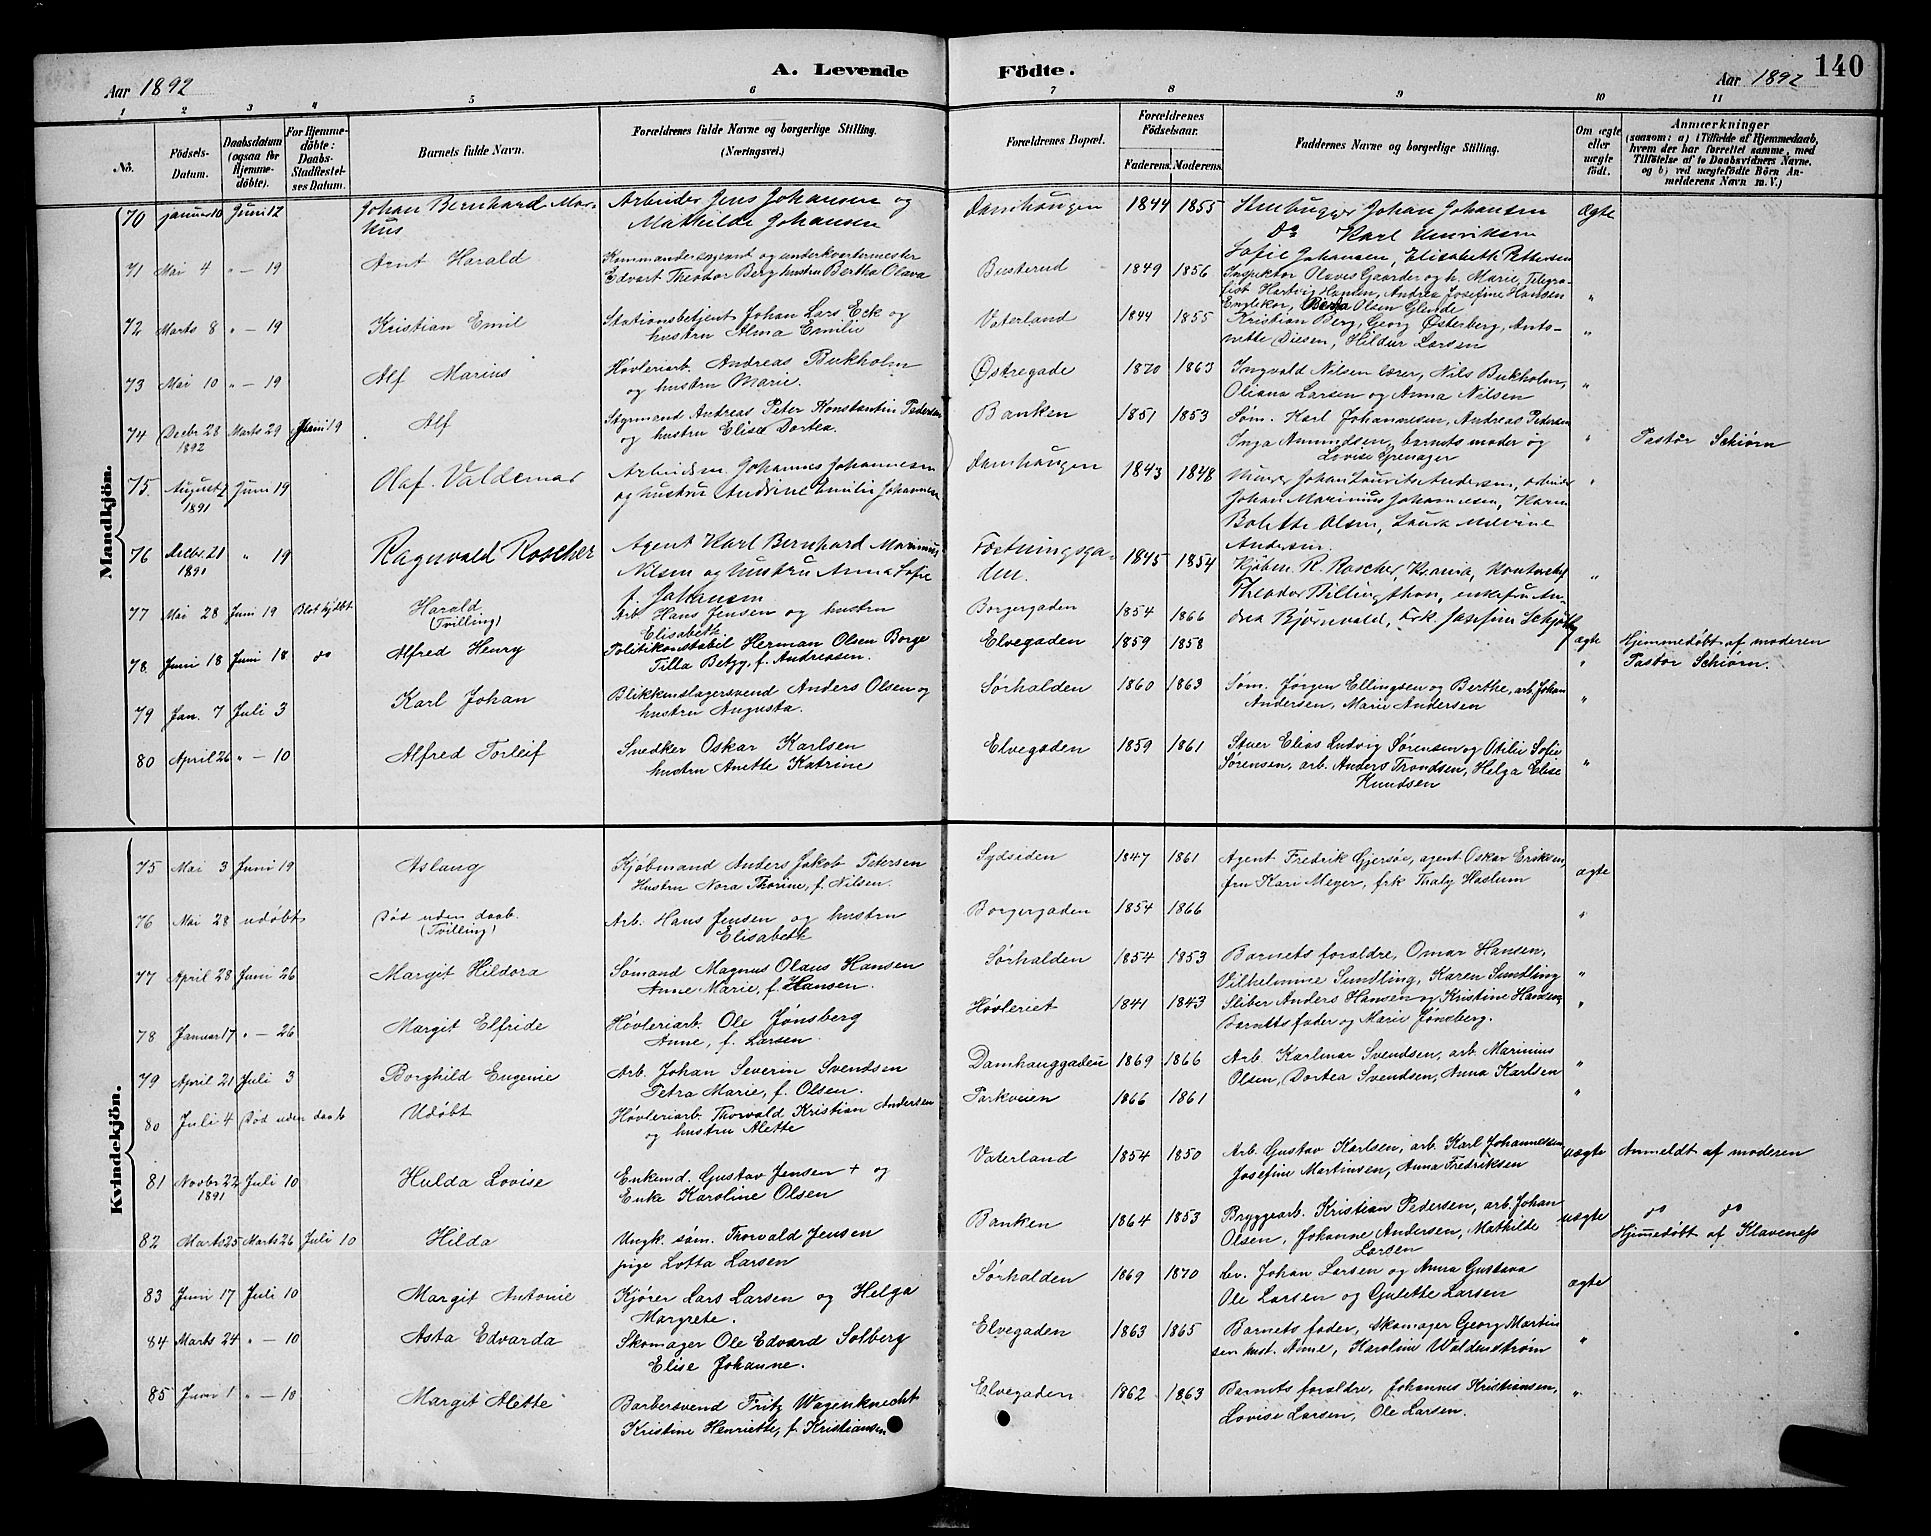 A. Levende Födte. 140
Aar 1892 Aar 1892
1 2 3 4 5 6 7 8 9 10 11
Nö.
Födsels-Datum.
Daabsdatum (ogsaa for Hjemme-döbte).
For Hjemme-döbte: Daabs-Stadfæstel-ses Datum.
Barnets fulde Navn.
Forældrenes fulde Navne og borgerlige Stilling.
(Næringsvei.)
Forældrenes Bopæl.
Forældrenes Födselsaar.
Faderens. Moderens.
Faddernes Navne og borgerlige Stilling.
Om ægte eller uægte födt.
Anmærkninger
(saasom: a) i Tilfælde af Hjemmedaab,
hvem der har forrettet samme, med
Tilföielse af to Daabsvidners Navne.
og b) ved uægtefödte Börn An-
melderens Navn m. V.)
Mandkjön.
70 Januar 10 Juni 12 Johan Bernhard Mar-
kus Arbeider Jens Johansen og
Mathilde Johansen Damhaugen 1844 1855 Stenhugger Johan Johansen
Do Karl Henriksen
Sofie Johansen, Elisabeth Pettersen Ægte
71 Mai 4 " — 19 Arnt Harald Kommandersergeand og underkvartermester
Edvart Theodor Berg hustru Bertha Olava Busterud 1849 1856 Inspektor Olaves Gaarder og h. Marie, Telegra-
fist Hartvig Hansen, Andrea Josefine Hansen "
72 Marts 8 " — 19 Kristian Emil Stationsbetjent Johan Lars Eck og
hustru Alma Emilie Vaterland 1844 1855 Olsen Glende
Kristian Berg, Georg Østerberg, Anto-
nette Diesen, Hildur Larsen "
73 Mai 10 " — 19 Alf Marius Høvleriarb. Andreas Bukholm
og hustru Marie. Østregade 1870 1863 Ingvald Nilsen lærer, Nils Bukholm,
Oliana Larsen og Anna Nilsen "
74 Decbr 28
1892 Marts 29 Juni 19 Alf Styrmand Andreas Peter Konstantin Pedersen
og hustru Elise Dortea. Banken 1851 1853 Søm. Karl Johannesen, Andreas Pedersen
Inga Amundsen, barnets moder og
Lovise Grenager " Pastor Schiørn
75. August 7
1891 Juni 19 Olaf Valdemar Arbeidsm. Johannes Johannesen
og hustru Andrine Emilie Johannesen Damhaugen 1843 1848 Murer Johan Lauritz Andersen, arbeider
Johan Marinius Johannesen, Karen
Bolette Olsen, Laura Milvine
Andersen. "
76 Decbr. 21
1891 " 19 Ragnvald Roscher Agent Karl Bernhard Marinius
Nilsen og hustru Anna Sofie
f. Johansen Fæstningsga-
den. 1845 1854 Kjøbm. R. Roscher, Krania, kontorchef
Theodor Dillingthon, enkefru An-
drea Bjørnvald, Frk. Josefine Schjøtky "
77 Mai 28 Juni 19 Blot hjdbt Harald
(Tvilling) Arb. Hans Jensen og hustru
Elisabeth. Borgergaden 1854 1866 ægte Hjemmedøbt af moderen
78. Juni 18 Juni 18 do Alfred Henry Politikonstabel Herman Olsen Borge
Tilla Betzy, f. Andreasen. Elvegaden 1859 1858 " Pastor Schiørn.
79 Jan. 7 Juli 3 Karl Johan Blikkenslagersvend Anders Olsen og
hustru Augusta. Sørhalden 1860 1863 Søm. Jørgen Ellingsen og Berthe, arb. Johan
Andersen, Marie Andersen "
80 April 26 " — 10 Alfred Torleif Snedker Oskar Karlsen
hustru Anette Katrine Elvegaden 1859 1861 Stuer Elias Ludvig Sørensen og Otilie Sofie
Sørensen, arb. Anders Trondsen, Helga Elise
Knudsen "
Kvindekjön.
75 Mai 3 Juni 19 Aslaug Kjøbmand Anders Jakob Petersen
Hustru Nora Thorine, f. Nilsen. Sydsiden 1847 1861 Agent Fredrik Gjersøe, agent Oskar Eriksen,
fru Kari Meyer, frk Thaly Haslum ægte
76 Mai 28 udøbt Død uden daab.
(Tvilling) Arb. Hans Jensen og hustru
Elisabeth Borgergaden 1854 1866 "
77 April 28 Juni 26 Margit Hildora Sømand Magnus Olaus Hansen
Anne Marie, f. Hansen. Sørhalden 1854 1853 Barnets foraldre, Omar Hansen,
Vilhelmine Sundling, Karen Sundling "
78 Januar 17 " — 26 Margit Elfride Høvleriarb. Ole Jønsberg
Anne, f. Larsen. Høvleriet 1841 1843 Sliber Anders Hansen og Kristine Hansen,
Barnets fader og Marie Jønsberg. "
79 April 21 Juli 3 Borghild Eugenie Arb. Johan Severin Svendsen
Petra Marie, f. Olsen. Damhauggaden 1869 1866 Arb. Karlmar Svendsen, arb. Marinius
Olsen, Dortea Svendsen, Anna Karlsen "
80 Juli 4 Død uden daab Udøbt Høvleriarb. Thorvald Kristian Andersen
og hustru Alette Parkveien 1866 1861 "
81 Novbr 22
1891 Juli 10 Hulda Lovise Enkemd. Gustav Jensen + og
Enke Karoline Olsen Vaterland 1854 1850 Arb. Gustav Karlsen, arb. Karl Johannesen
Josefine Martinsen, Anna Fredriksen uægte Anmeldt af moderen
82 Marts 25 Marts 26 Juli 10 Hilda Ungk. søm. Thorvald Jensen
pige Lotta Larsen Banken 1864 1853 Bryggearb. Kristian Pedersen, arb. Johan
Olsen, Johanne Andersen, Mathilde
Larsen uægte do do
Hjemmedøbt af Klaveness
83 Juni 17 Juli 10 Margit Antonie Kjører Lars Larsen og Helga
Margrete. Sørhalden 1869 1870 Johan Larsen og Anna Gustava
Ole Larsen og Gulette Larsen ægte
84 Marts 24 " — 10 Asta Edvarda Skomager Ole Edvard Solberg
Elise Johanne. Elvegaden 1863 1865 Barnets fader, skomager Georg Martin
sen hust. Anne, Karoline Waldenstrøm "
85 Juni 1 " — 10 Margit Alette Barbersvend Fritz Wagenknecht
Kristine Henriette, f. Kristiansen Elvegaden 1862 1863 Barnets foraldre, Johannes Kristiansen,
Lovise Larsen, Ole Larsen. "